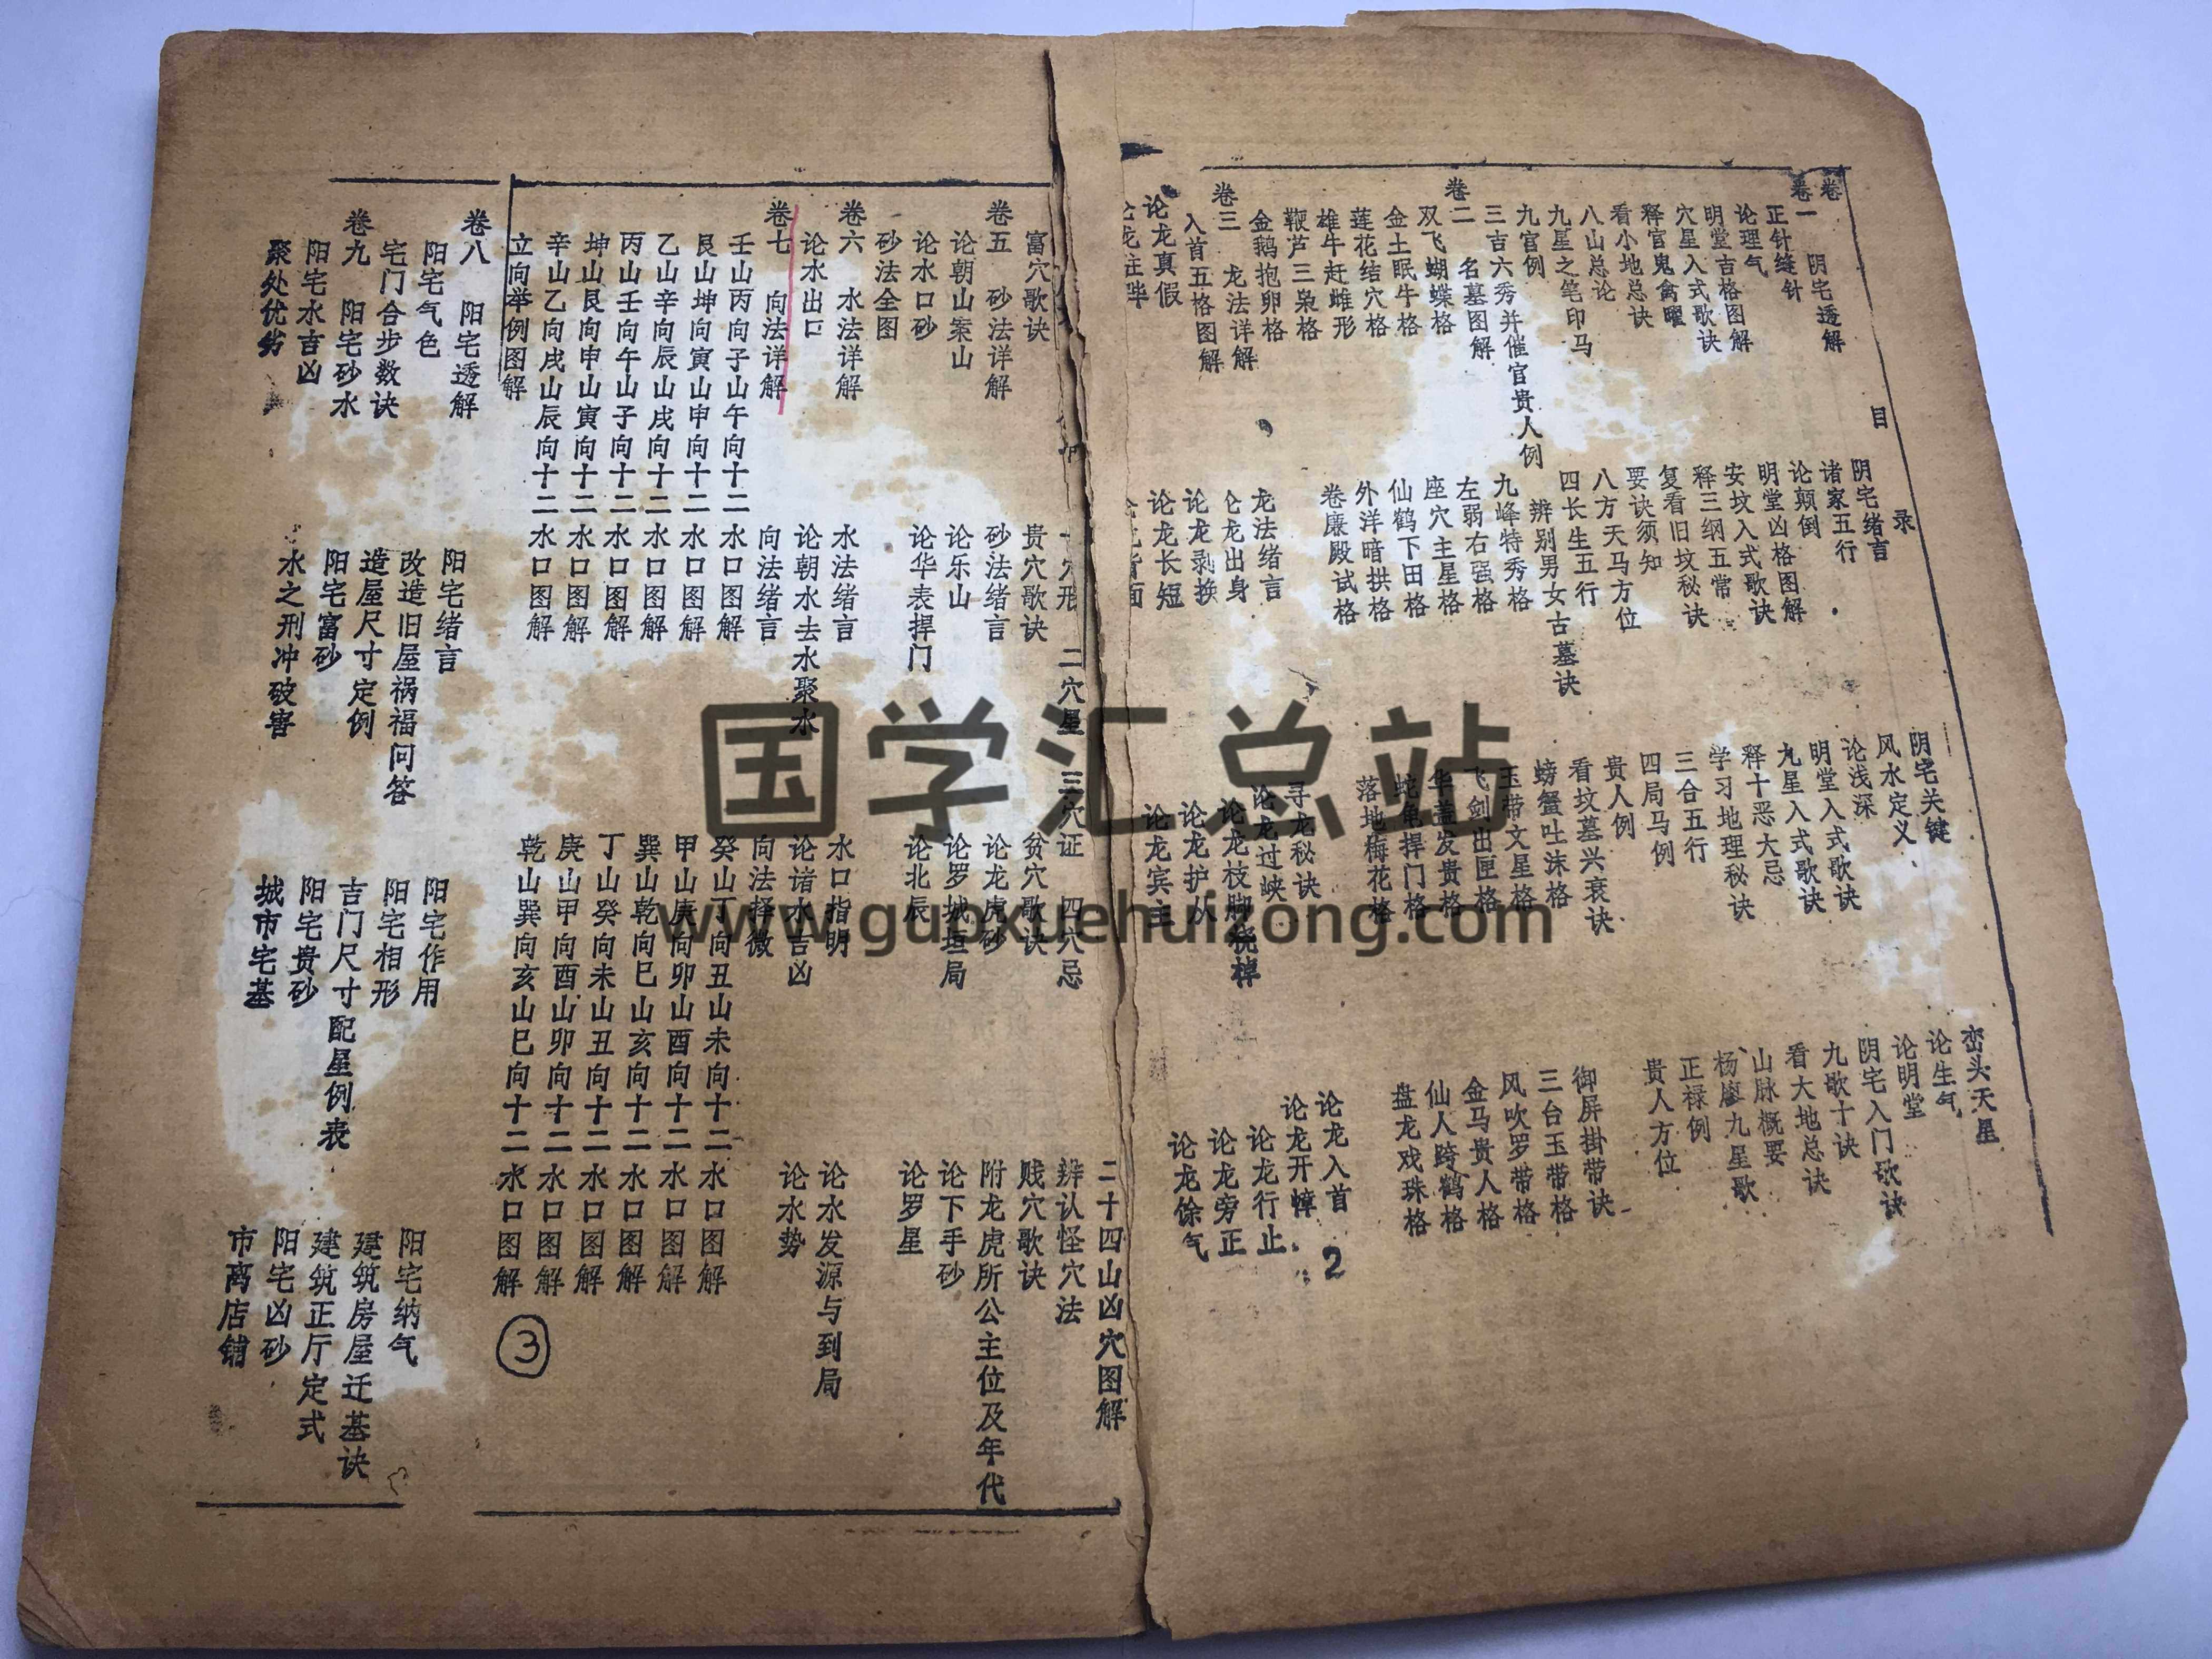 目录
卷一 阴宅透解 阴宅绪言 阴宅关键 峦头天星
正针缝针 诸家五行 风水定义 论生气
论理气 论颠倒 论浅深 论明堂
明堂吉格图解 明堂凶格图解 明堂入式歌诀 阴宅入门歌诀
穴星入式歌诀 安坟入式歌诀 九星入式歌诀 九歌十诀
释官鬼禽曜 释三纲五常 释十恶大忌 看大地总诀
看小地总诀 复看旧坟秘诀 学习地理秘诀 山脉概要
八山总论 要诀须知 三合五行 杨廖九星歌
九星之笔印马 八方天马方位 四局马例 正禄例
九官例 四长生五行 贵人例 贵人方位
三吉六秀并催官贵人例 辨别男女古墓诀 看坟墓兴衰诀
卷二 名墓图解 九峰特秀格 螃蟹吐沫格 御屏掛带诀
双飞蝴蝶格 左弱右强格 玉带文星格 三台玉带格
金土眠牛格 座穴主星格 飞剑出匣格 风吹罗带格
莲花结穴格 仙鹤下田格 华盖发贵格 金马贵人格
雄牛赶雌形 外洋暗拱格 蛇龟捍门格 仙人跨鹤格
鞭芦三枭格 卷廉殿试格 落地梅花格 盘龙戏珠格
金鹅抱卵格
卷三 龙法详解 龙法绪言 寻龙秘诀 论龙入首
入首五格图解 论龙出身 论龙过峡 论龙开幛
论龙真假 论龙剥换 论龙枝脚桡棹 论龙行止
论龙长短 论龙护从 论龙旁正
论龙宾主 论龙馀气
2
二十四山凶穴图解
穴形 二穴星 三穴证 四穴忌 辨认怪穴法
富穴歌诀 贵穴歌诀 贫穴歌诀 贱穴歌诀
卷五 砂法详解 砂法绪言 论龙虎砂 附龙虎所公主位及年代
论朝山案山 论乐山 论罗城垣局 论下手砂
论水口砂 论华表捍门 论北辰 论罗星
砂法全图
卷六 水法详解 水法绪言 水口指明 论水发源与到局
论水出口 论朝水去水聚水 论诸水吉凶 论水势
卷七 向法详解 向法绪言 向法择微
壬山丙向子山午向十二水口图解 癸山丁向丑山未向十二水口图解
艮山坤向寅山申向十二水口图解 甲山庚向卯山酉向十二水口图解
乙山辛向辰山戌向十二水口图解 巽山乾向巳山亥向十二水口图解
丙山壬向午山子向十二水口图解 丁山癸向未山丑向十二水口图解
坤山艮向申山寅向十二水口图解 庚山甲向酉山卯向十二水口图解
辛山乙向戌山辰向十二水口图解 乾山巽向亥山巳向十二水口图解
立向举例图解
3
卷八 阳宅透解 阳宅绪言 阳宅作用 阳宅纳气
阳宅气色 改造旧屋祸福问答 阳宅相形 建筑房屋迁基诀
宅门合步数诀 造屋尺寸定例 吉门尺寸配星例表 建筑正厅定式
卷九 阳宅砂水 阳宅富砂 阳宅贵砂 阳宅凶砂
阳宅水吉凶 水之刑冲破害 城市宅基 市离店铺
聚处优劣
国学汇总站
www.guoxuehuizong.com